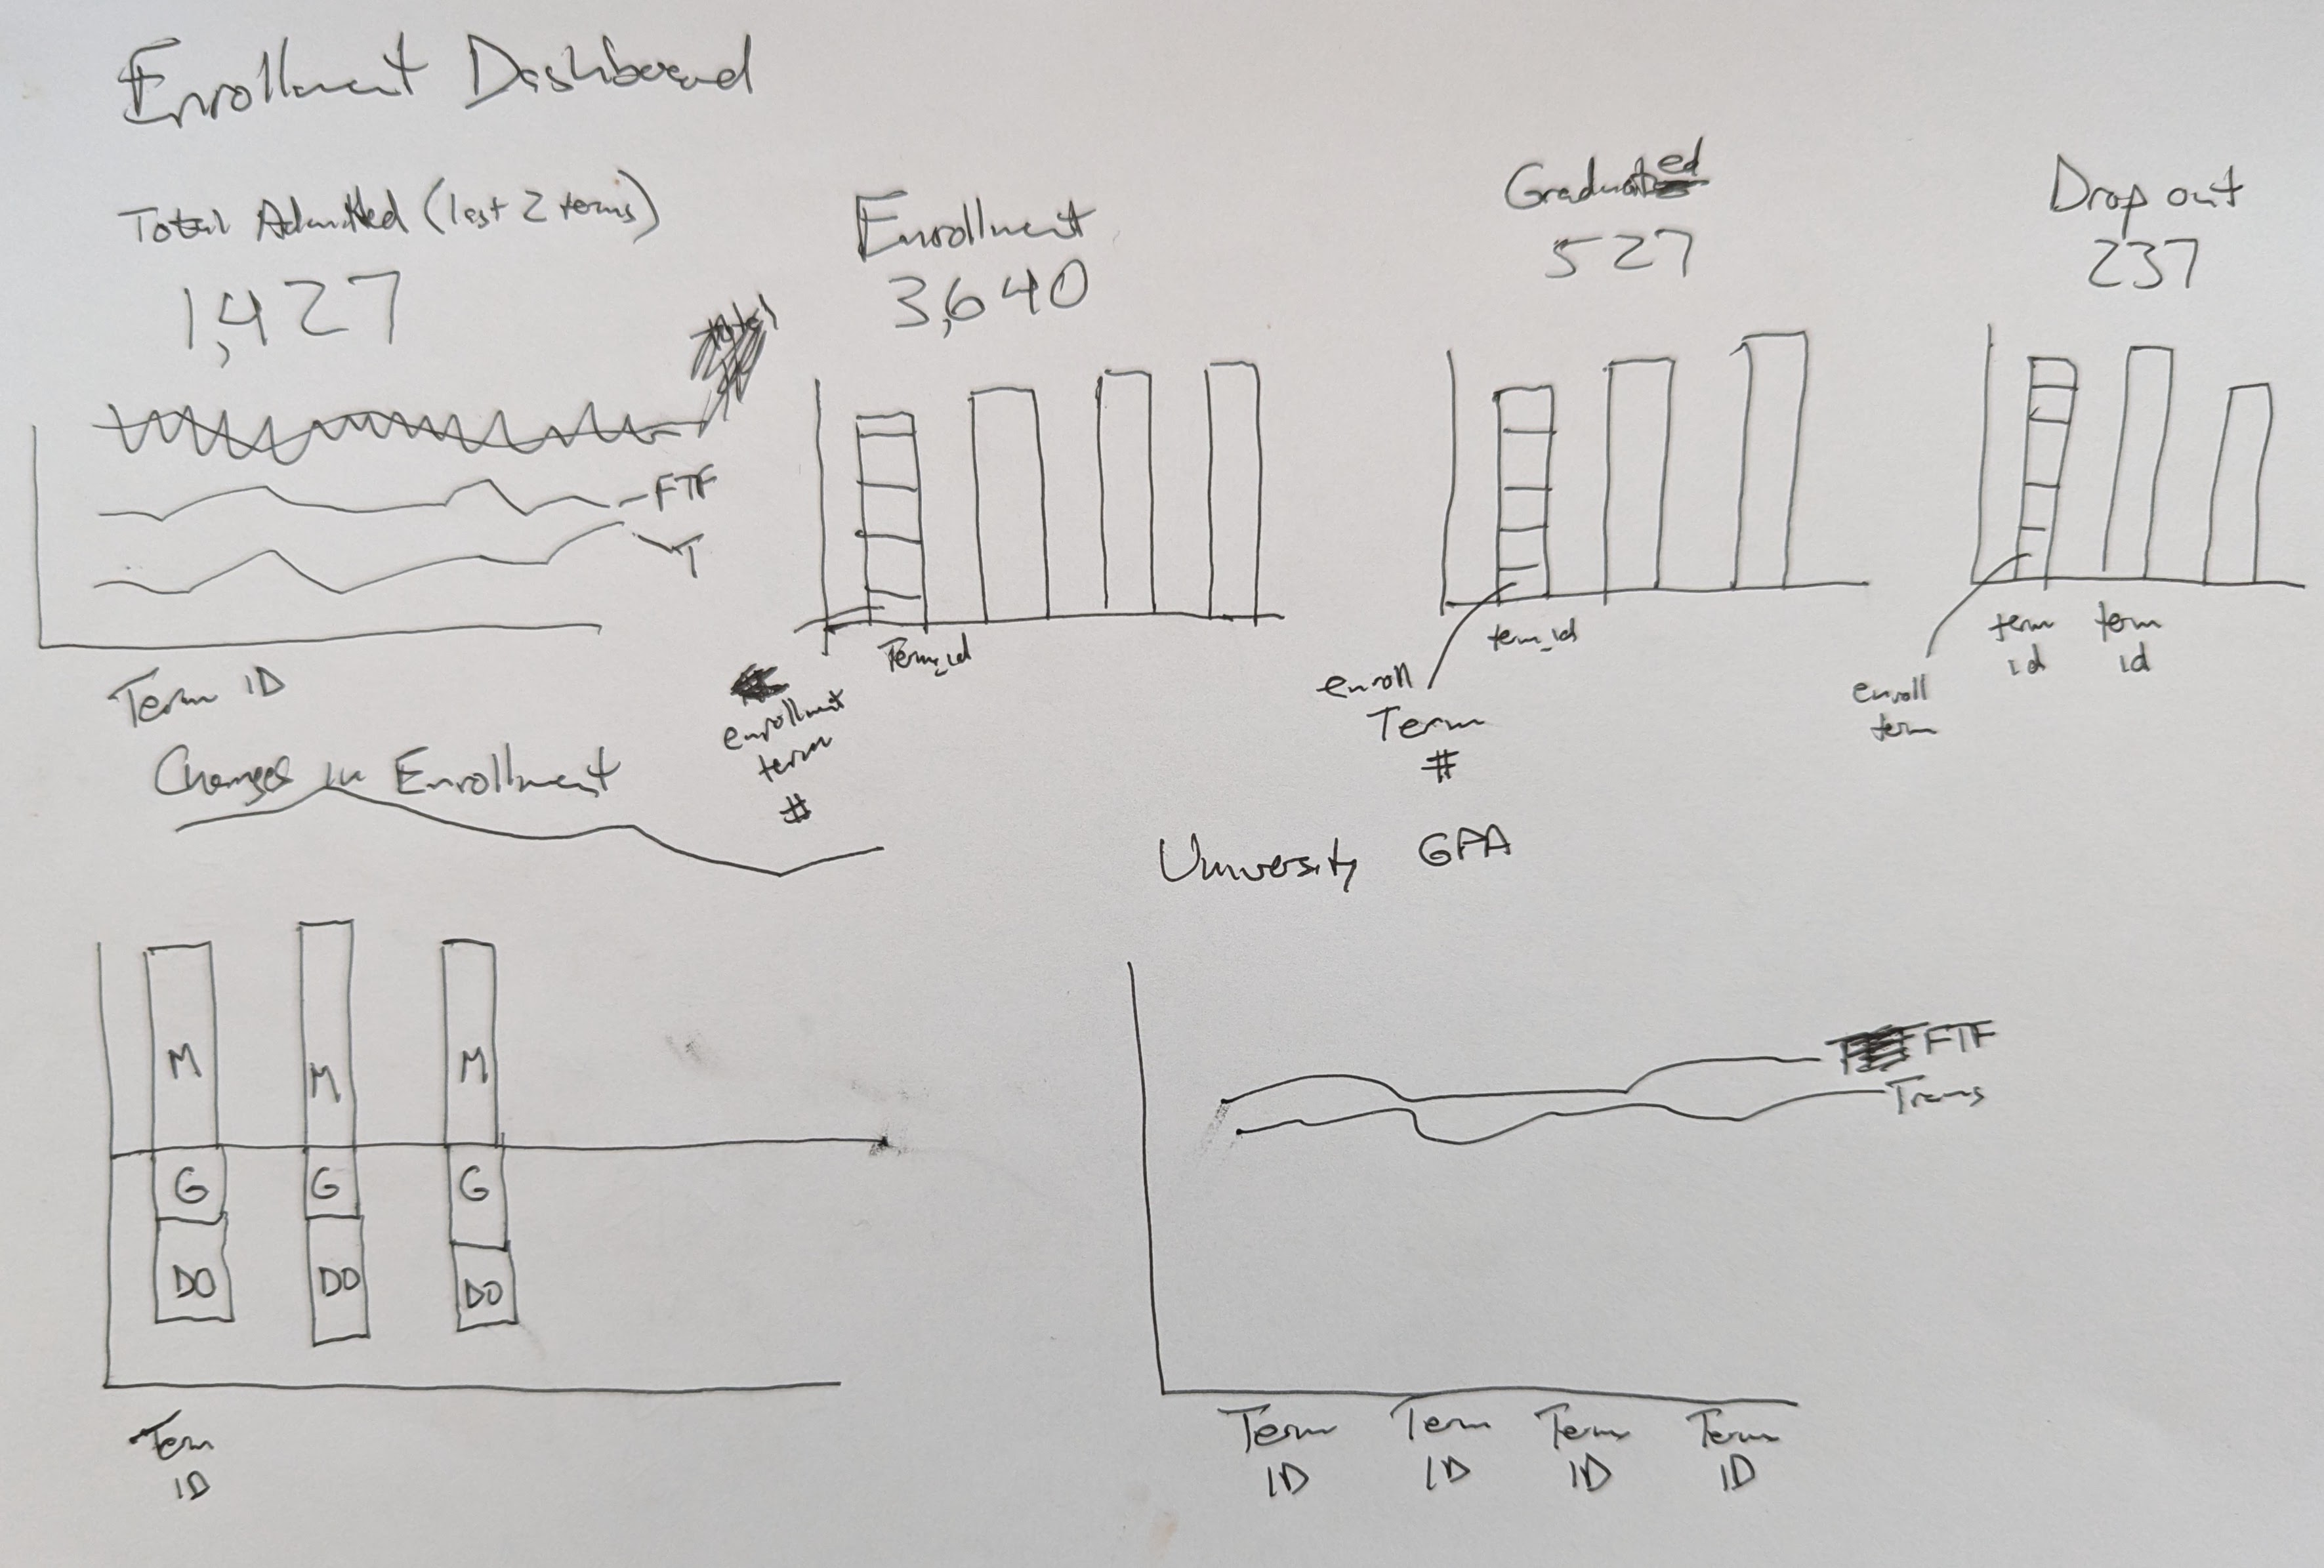 Enrollment Dashboard
Total Admitted (last 2 terms)
1,427
total
FTF
T
Term ID
Enrollment
3,640
Term_id
enrollment
term
#
Graduated
527
term_id
enroll
Term
#
Drop out
237
term
id
term
id
enroll
term
Changes in Enrollment
M
M
M
G
G
G
DO
DO
DO
Term
ID
University GPA
FTF
Trans
Term
ID
Term
ID
Term
ID
Term
ID